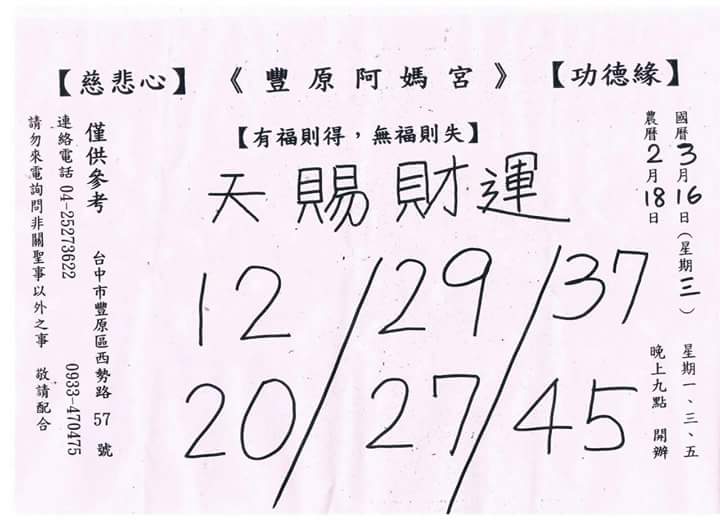 【慈悲心】 《豐原阿媽宮》 【功德緣】
【有福則得，無福則失】
國曆3月16日(星期三)
農曆2月18日
星期一、三、五
晚上九點 開辦
天賜財運
12/29/37
20/27/45
僅供參考
台中市豐原區西勢路 57 號
連絡電話 04-25273622
0933-470475
請勿來電詢問非關聖事以外之事 敬請配合